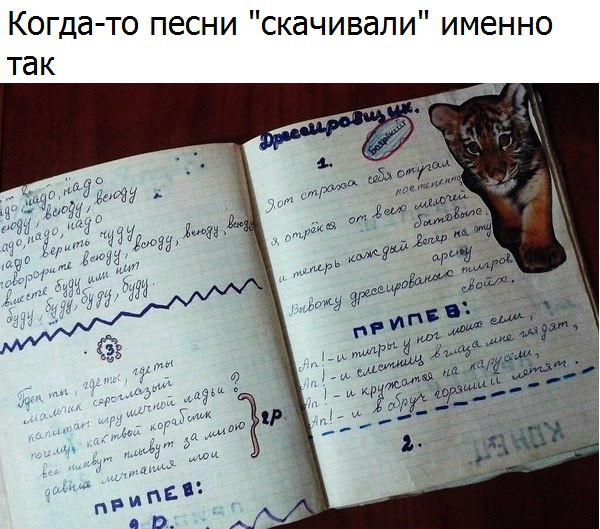 Когда-то песни "скачивали" именно
так
надо, надо
всюду, всюду, всюду
надо, надо, надо
надо верить чуду
всюду, всюду, всюду, всюду
вместе буду или нет
буду, буду, буду, буду.
3
Где ты, где ты, где ты
мальчик сероглазый
капитан игрушечной ладьи?
почему, как твой кораблик
все плывут плывут за мною
давние мечтания мои
2р.
ПРИПЕВ:
2 р.
Дрессировщик.
Боярский
1.
Я от страха себя отучал
постепенно,
я отрёкся от всех мелочей
бытовых.
и теперь каждый вечер на эту
арену
Вывожу дрессированых тигров
своих.
ПРИПЕВ:
Ап! - и тигры у ног моих сели,
Ап! - и с лестниц в глаза мне глядят,
Ап! - и кружатся на карусели,
Ап! - и в обруч горящий летят.
2.